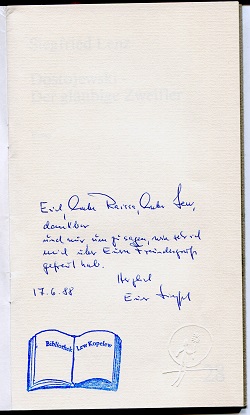 Siegfried Lenz
Dostojewski –
Der gläubige Zweifler
Euch, liebe Raissa, lieber Lew,
dankbar
und nur um zu sagen, wie sehr ich
mich über Euren Freundesgruß
gefreut hab.
Herzlich
17.6.88 Euer Siegfried
Bibliothek Lew Kopelew